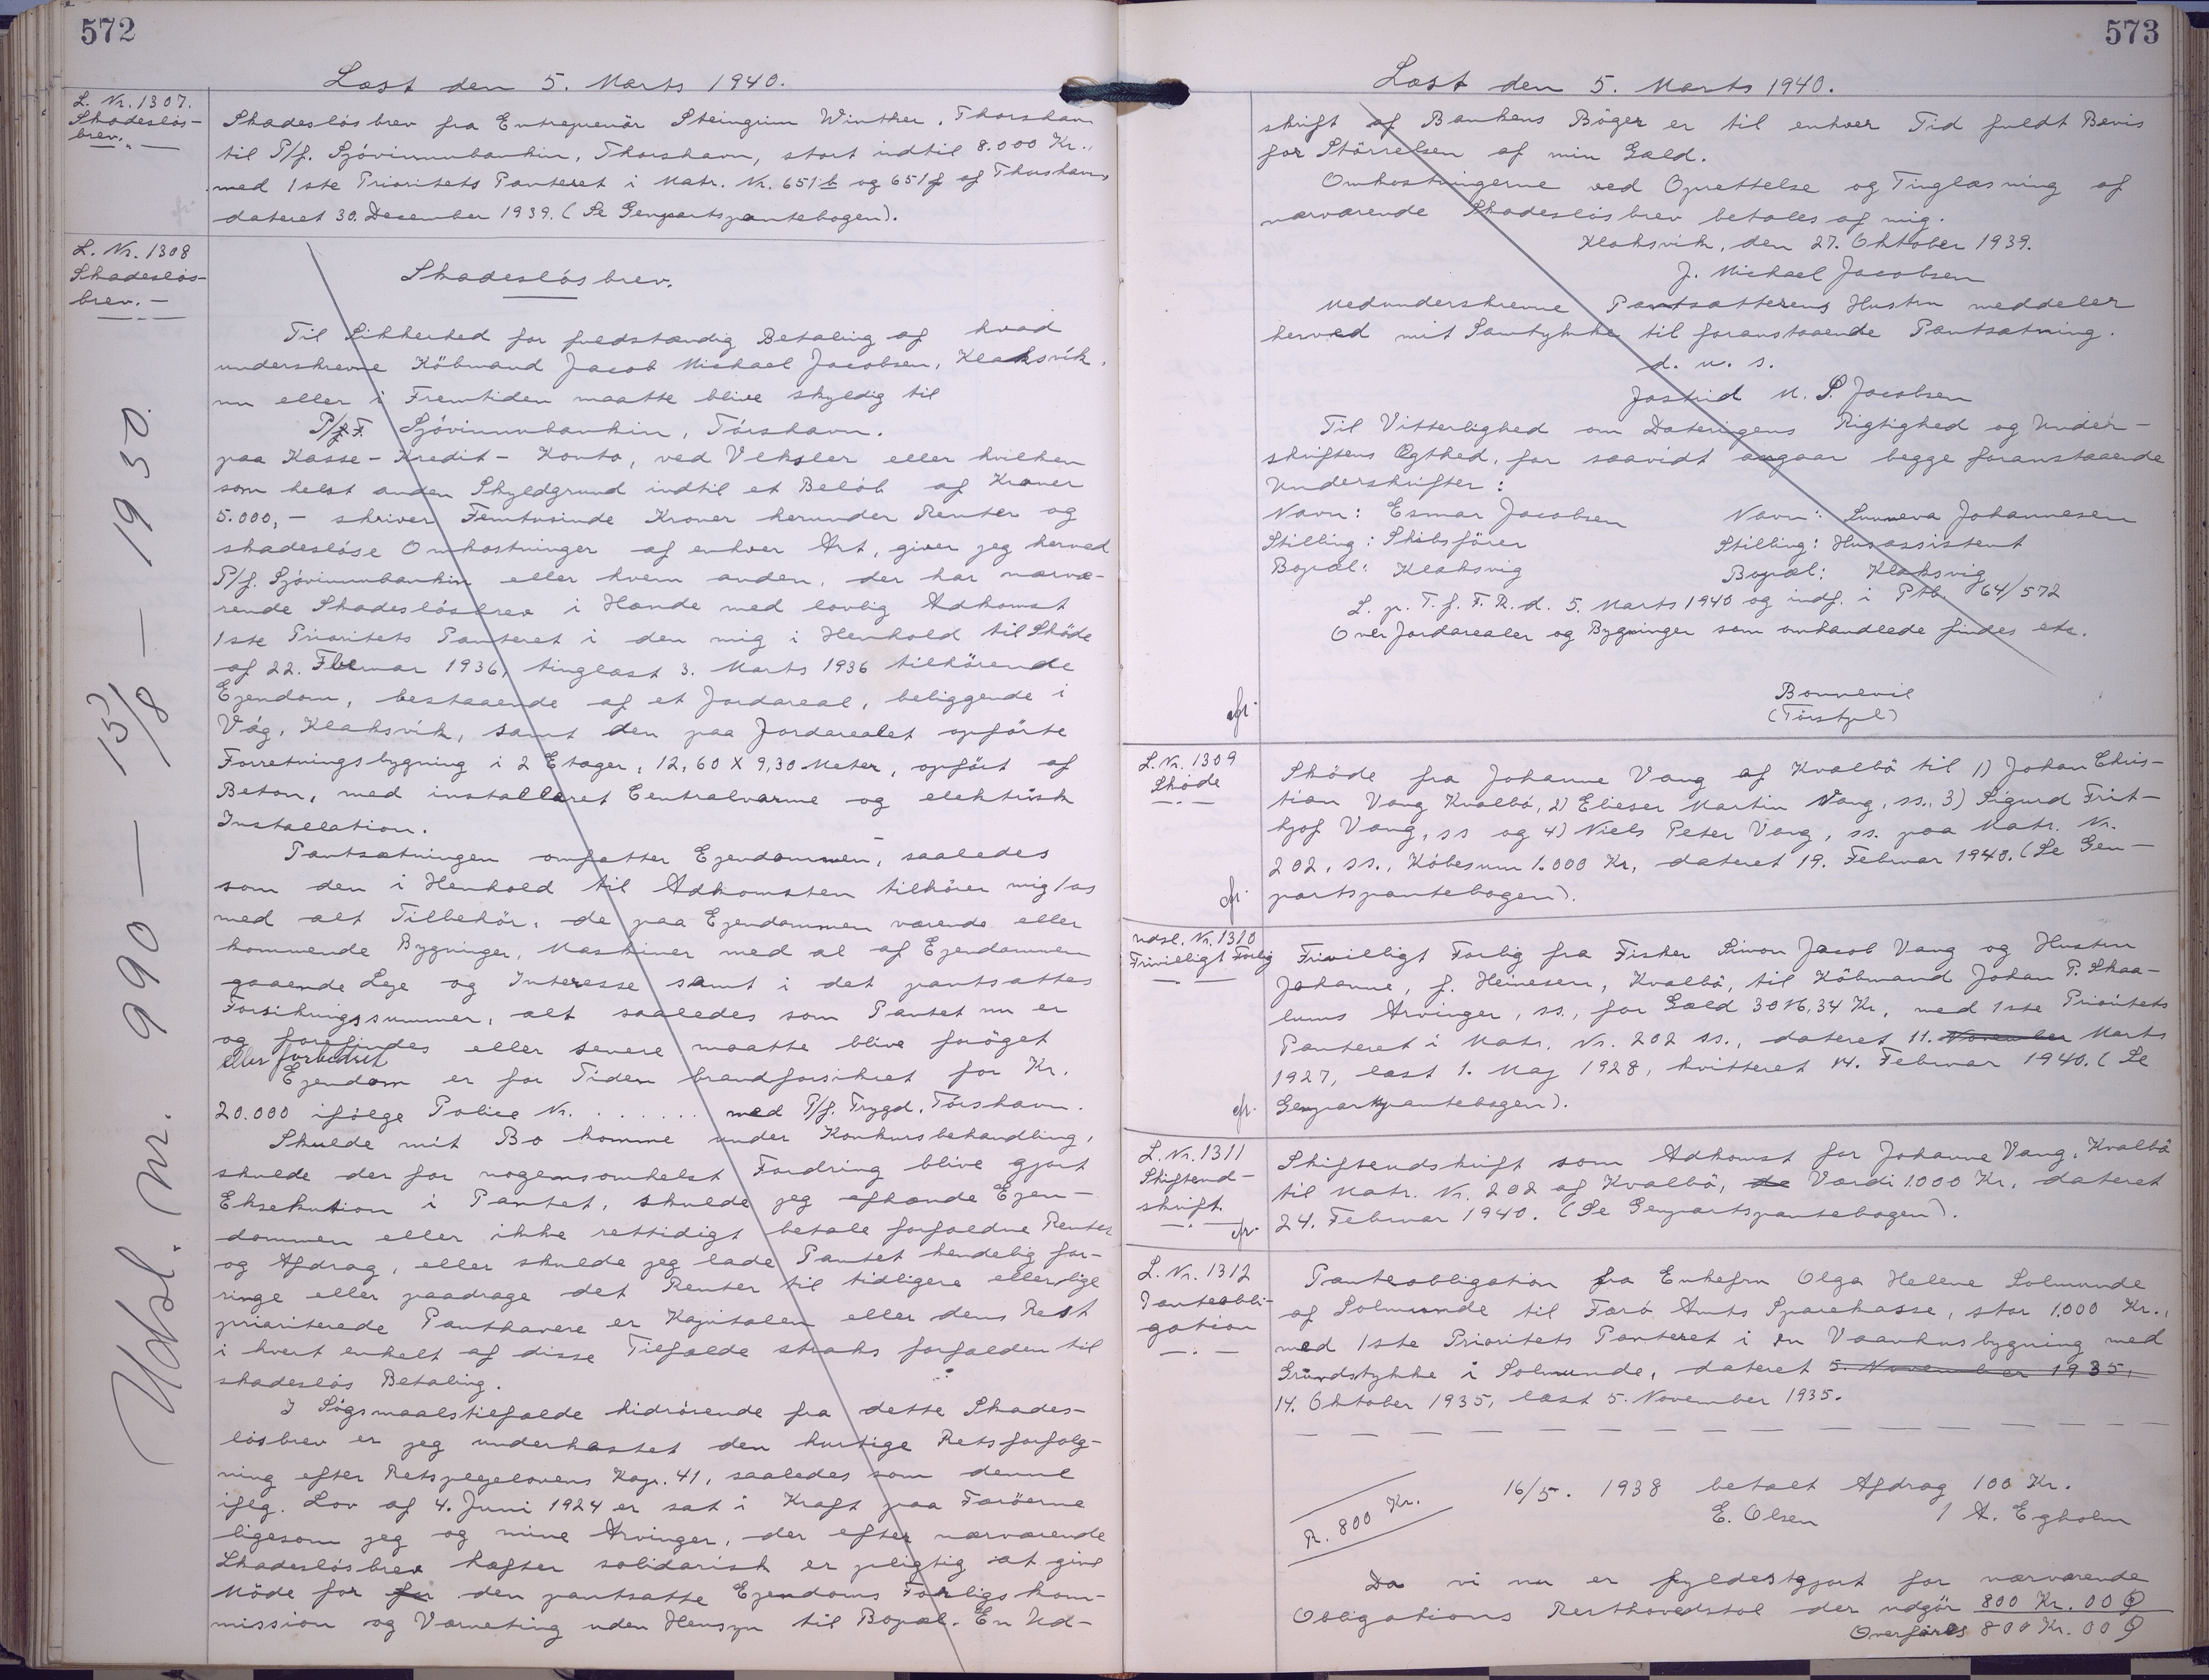 572
Læst den 5. Marts 1940.
L. Nr. 1307.
Skadeslös-
brev.
Skadeslösbrev fra Entreprenör Steingrim Winther, Thorshavn
til P/f. Sjóvinnubankin, Thorshavn, stort indtil 8.000 Kr.,
med 1ste Prioritets Panteret i Matr. Nr. 651 b og 651 f af Thorshavn,
dateret 30. December 1939. (Se Genpartspantebogen).
L. Nr. 1308
Skadeslös-
brev.
Skadeslösbrev.
Til Sikkerhed for fuldstændig Betaling af hvad
underskrevne Köbmand Jacob Michael Jacobsen, Klaksvík,
nu eller i Fremtiden maatte blive skyldig til
P/F. Sjóvinnubankin, Tórshavn.
paa Kasse-Kredit-Konto, ved Veksler eller hvilken
som helst anden Skyldgrund indtil et Belöb af Kroner
5.000,- skriver Femtusinde Kroner herunder Renter og
skadeslöse Omkostninger af enhver Art, giver jeg herved
P/f. Sjóvinnubankin eller hvem anden, der har nærvæ-
rende Skadeslösbrev i Hænde med lovlig Adkomst
1ste Prioritets Panteret i den mig i Henhold til Sköde
af 22. Februar 1936, tinglæst 3. Marts 1936 tilhörende
Ejendom, bestaaende af et Jordareal, beliggende i
Vág, Klaksvík, samt den paa Jordarealet opförte
Forretningsbygning i 2 Etager, 12,60 X 9,30 Meter, opfört af
Beton, med installeret Centralvarme og elektrisk
Installation.
Pantsætningen omfatter Ejendommen, saaledes
som den i Henhold til Adkomsten tilhörer mig/os
med alt Tilbehör, de paa Ejendommen værende eller
kommende Bygninger, Maskiner med al af Ejendommen
gaaende Leje og Interesse samt i det pantsattes
Forsikringssummer, alt saaledes som Pantet nu er
og forefindes eller senere maatte blive foröget
eller forbedret
Ejendom er for Tiden brandforsikret for Kr.
20.000 ifölge Police Nr. . . . . . . med P/f. Trygd, Tórshavn.
Skulde mit Bo komme under Konkursbehandling,
skulde der for nogensomhelst Fordring blive gjort
Eksekution i Pantet, skulde jeg afhænde Ejen-
dommen eller ikke rettidigt betale forfaldne Renter
og Afdrag, eller skulde jeg lade Pantet kendelig for-
ringe eller paadrage det Renter til tidligere eller lige
prioriterede Panthavere er Kapitalen eller dens Rest
i hvert enkelt af disse Tilfælde straks forfalden til
skadeslös Betaling.
I Sögsmaalstilfælde hidrörende fra dette Skades-
lösbrev er jeg underkastet den hurtige Retsforfølg-
ning efter Retsplejelovens Kap. 41, saaledes som denne
iflg. Lov af 4. Juni 1924 er sat i Kraft paa Færöerne
ligesom jeg og mine Arvinger, der efter nærværende
Skadeslösbrev hæfter solidarisk er pligtig at give
Möde for for den pantsatte Ejendoms Forligskom-
mission og Værneting uden Hensyn til Bopæl. En Ud-
Udsl. Nr. 990 — 15/8 — 1950.
573
Læst den 5. Marts 1940.
skrift af Bankens Böger er til enhver Tid fuldt Bevis
for Störrelsen af min Gæld.
Omkostningerne ved Oprettelse og Tinglæsning af
nærværende Skadeslösbrev betales af mig.
Klaksvík, den 27. Oktober 1939.
J. Michael Jacobsen
Medunderskrevne Pantsætterens Hustru meddeler
herved mit Samtykke til foranstaaende Pantsætning.
d. u. s.
Jastrid M. S. Jacobsen
Til Vitterlighed om Dateringens Rigtighed og Under-
skriftens Ægthed, for saavidt angaar begge foranstaaende
Underskrifter:
Navn: Esmar Jacobsen Navn: Sunneva Johannesen
Stilling: Skibsförer Stilling: Husassistent
Bopæl: Klaksvig Bopæl: Klaksvig
L. p. T. f. F. R. d. 5. Marts 1940 og indf. i Ptb. 64/572
Over Jordarealer og Bygninger som omhandlede findes etc.
Bonnevie
(Tórstpl)
afr.
L. Nr. 1309
Sköde
Sköde fra Johanne Vang af Kvalbö til 1) Johan Chris-
tian Vang Kvalbö, 2) Elieser Martin Vang, ss., 3) Sigurd Frit-
hjof Vang, ss og 4) Niels Peter Vang, ss. paa Matr. Nr.
202, ss., Köbesum 1.000 Kr., dateret 19. Februar 1940. (Se Gen-
partspantebogen).
afr.
Udsl. Nr. 1310
Frivilligt Forlig
Frivilligt Forlig fra Fisker Simon Jacob Vang og Hustru
Johanne, f. Heinesen, Kvalbö, til Köbmand Johan P. Skaa-
lums Arvinger, ss., for Gæld 3016,34 Kr., med 1ste Prioritets
Panteret i Matr. Nr. 202 ss., dateret 11. November Marts
1927, læst 1. Maj 1928, kvitteret 14. Februar 1940. (Se
Genpartspantebogen).
afr.
L. Nr. 1311
Skifteud-
skrift
Skifteudskrift som Adkomst for Johanne Vang, Kvalbö
til Matr. Nr. 202 af Kvalbö, de Værdi 1000 Kr., dateret
24. Februar 1940. (Se Genpartspantebogen).
afr.
L. Nr. 1312
Panteobli-
gation
Panteobligation fra Enkefru Olga Helene Solmunde
af Solmunde til Færö Amts Sparekasse, stor 1.000 Kr.,
med 1ste Prioritets Panteret i en Vaanhusbygning med
Grundstykke i Solmunde, dateret 5. November 1935,
14. Oktober 1935, læst 5. November 1935.
R. 800 Kr.
16/5. 1938 betalt Afdrag 100 Kr.
E. Olsen / A. Egholm
Da vi nu er fyldestgjort for nærværende
Obligations Resthovedstol der udgör 800 Kr. 00 Ø
Overföres 800 Kr. 00 Ø